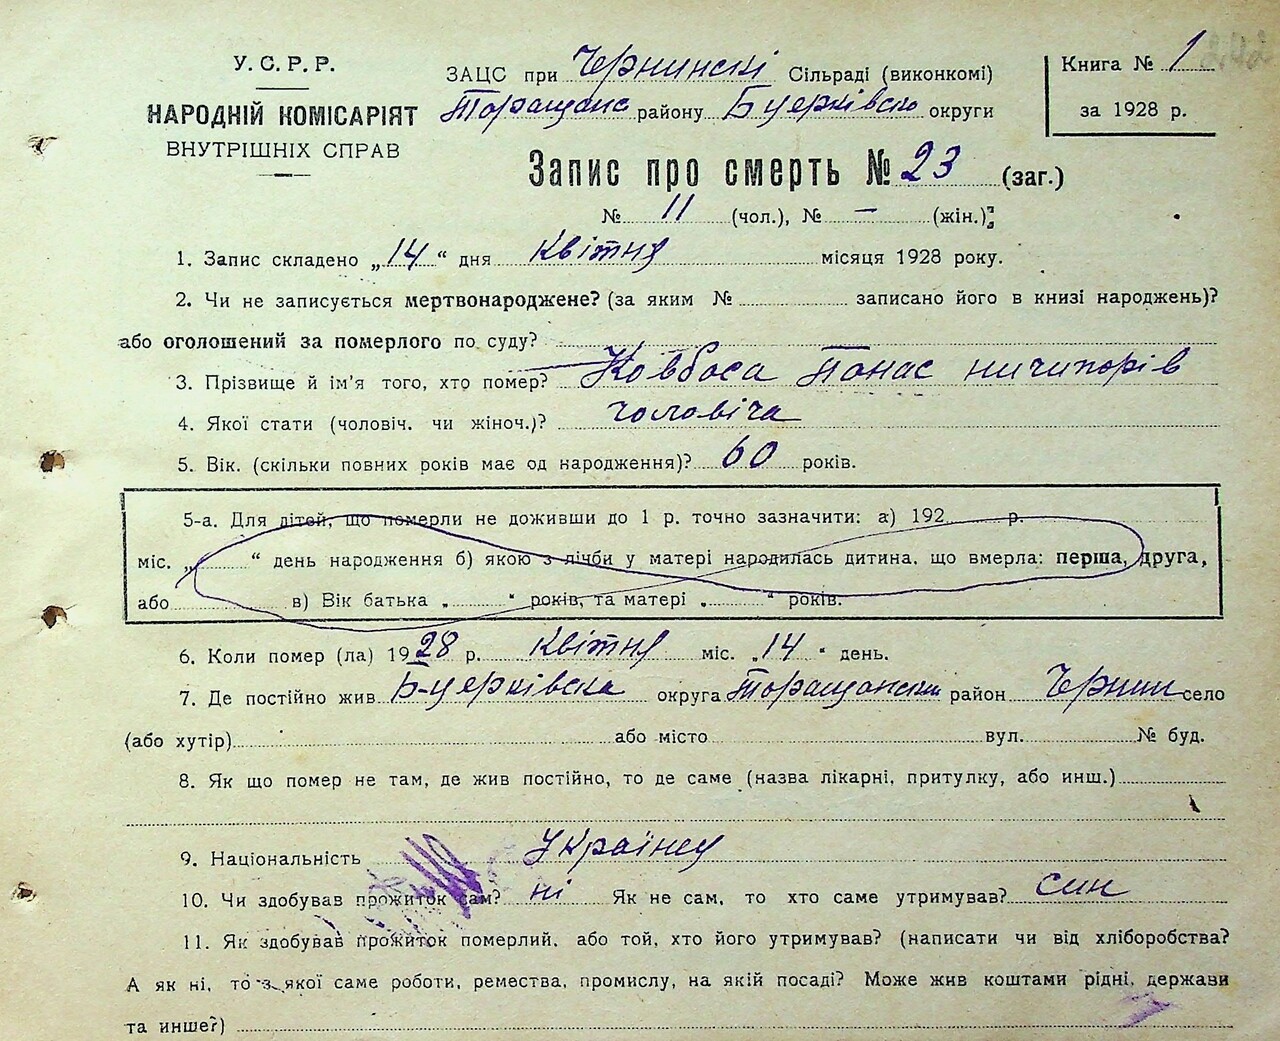 У. С. Р. Р.
НАРОДНІЙ КОМІСАРІЯТ
ВНУТРІШНІХ СПРАВ
ЗАЦС при Чернинскі Сільраді (виконкомі)
Таращанс району Б церківсько округи
Книга № 1
за 1928 р.
Запис про смерть № 23 (заг.)
№ 11 (чол.), № — (жін.)
1. Запис складено „14“ дня Квітня місяця 1928 року.
2. Чи не записується мертвонароджене? (за яким № записано його в книзі народжень)?
або оголошений за померлого по суду?
3. Прізвище й ім'я того, хто помер? Ковбаса Панас ничипорів
4. Якої стати (чоловіч. чи жіноч.)? чоловіча
5. Вік. (скільки повних років має од народження)? 60 років.
5-а. Для дітей, що померли не доживши до 1 р. точно зазначити: а) 192 р.
міс. „ “ день народження б) якою з лічби у матері народилась дитина, що вмерла: перша, друга,
або в) Вік батька „ “ років, та матері „ “ років.
6. Коли помер (ла) 1928 р. Квітня міс. „14“ день.
7. Де постійно жив Б-церківска округа Таращанский район Чернин село
(або хутір) або місто вул. № буд.
8. Як що помер не там, де жив постійно, то де саме (назва лікарні, притулку, або инш.)
9. Національність Українец
10. Чи здобував прожиток сам? ні Як не сам, то хто саме утримував? син
11. Як здобував прожиток померлий, або той, хто його утримував? (написати чи від хліборобства?
А як ні, то з якої саме роботи, ремества, промислу, на якій посаді? Може жив коштами рідні, держави
та инше?)